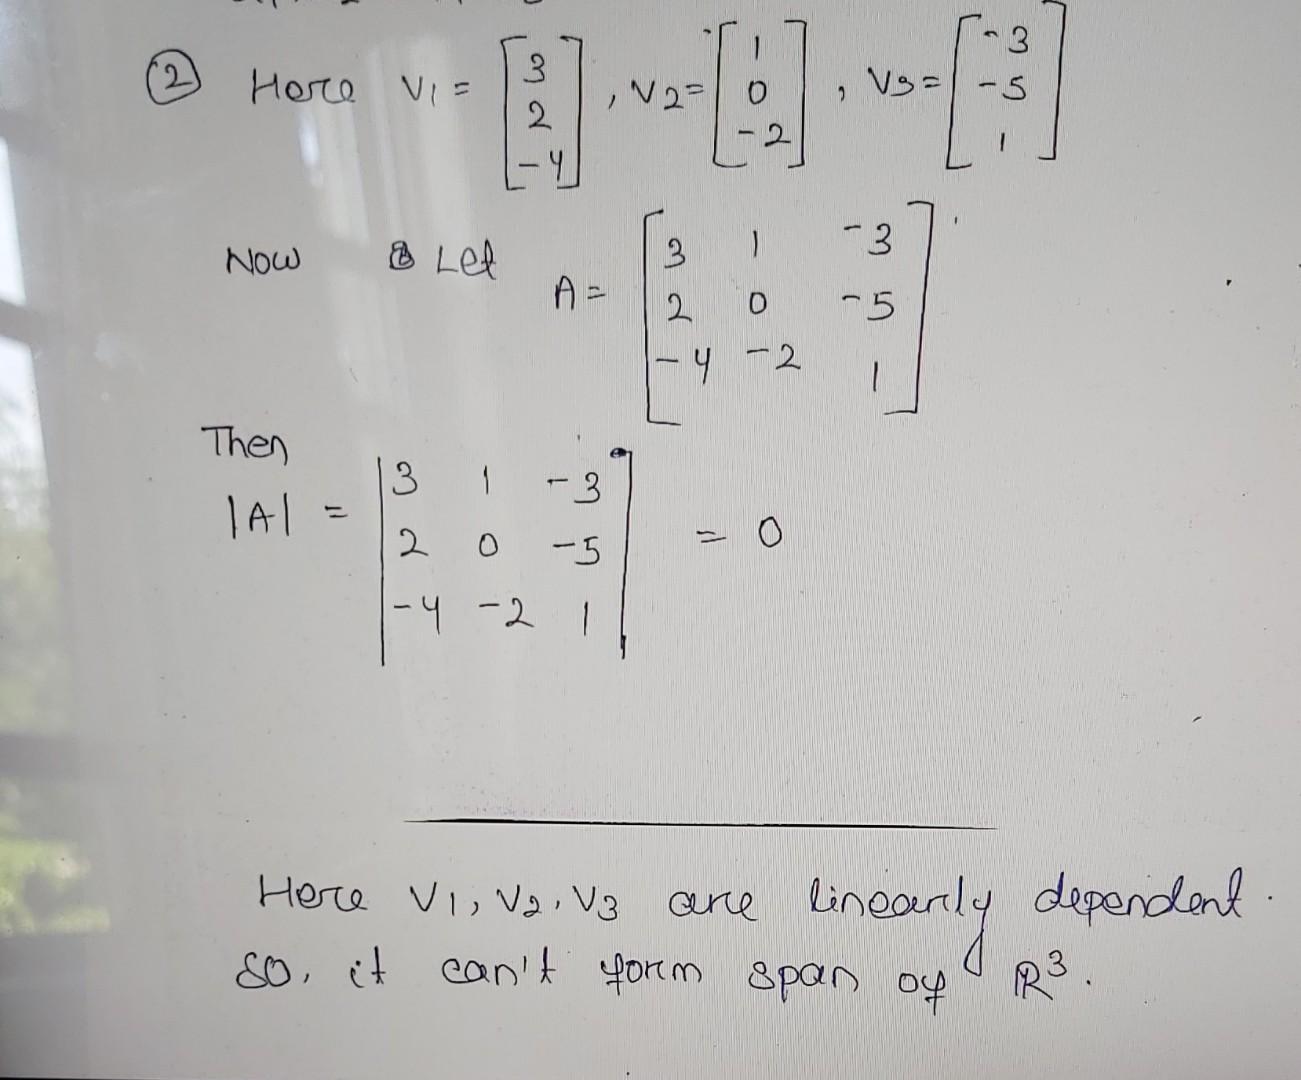 ② Here V1 = [3 2 -4], V2 = [1 0 -2], V3 = [-3 -5 1]
Now Let A = [3 1 -3
2 0 -5
-4 -2 1]
Then
|A| = |3 1 -3
2 0 -5
-4 -2 1| = 0
Here V1, V2, V3 are linearly dependent.
so, it can't form span of ℝ³.